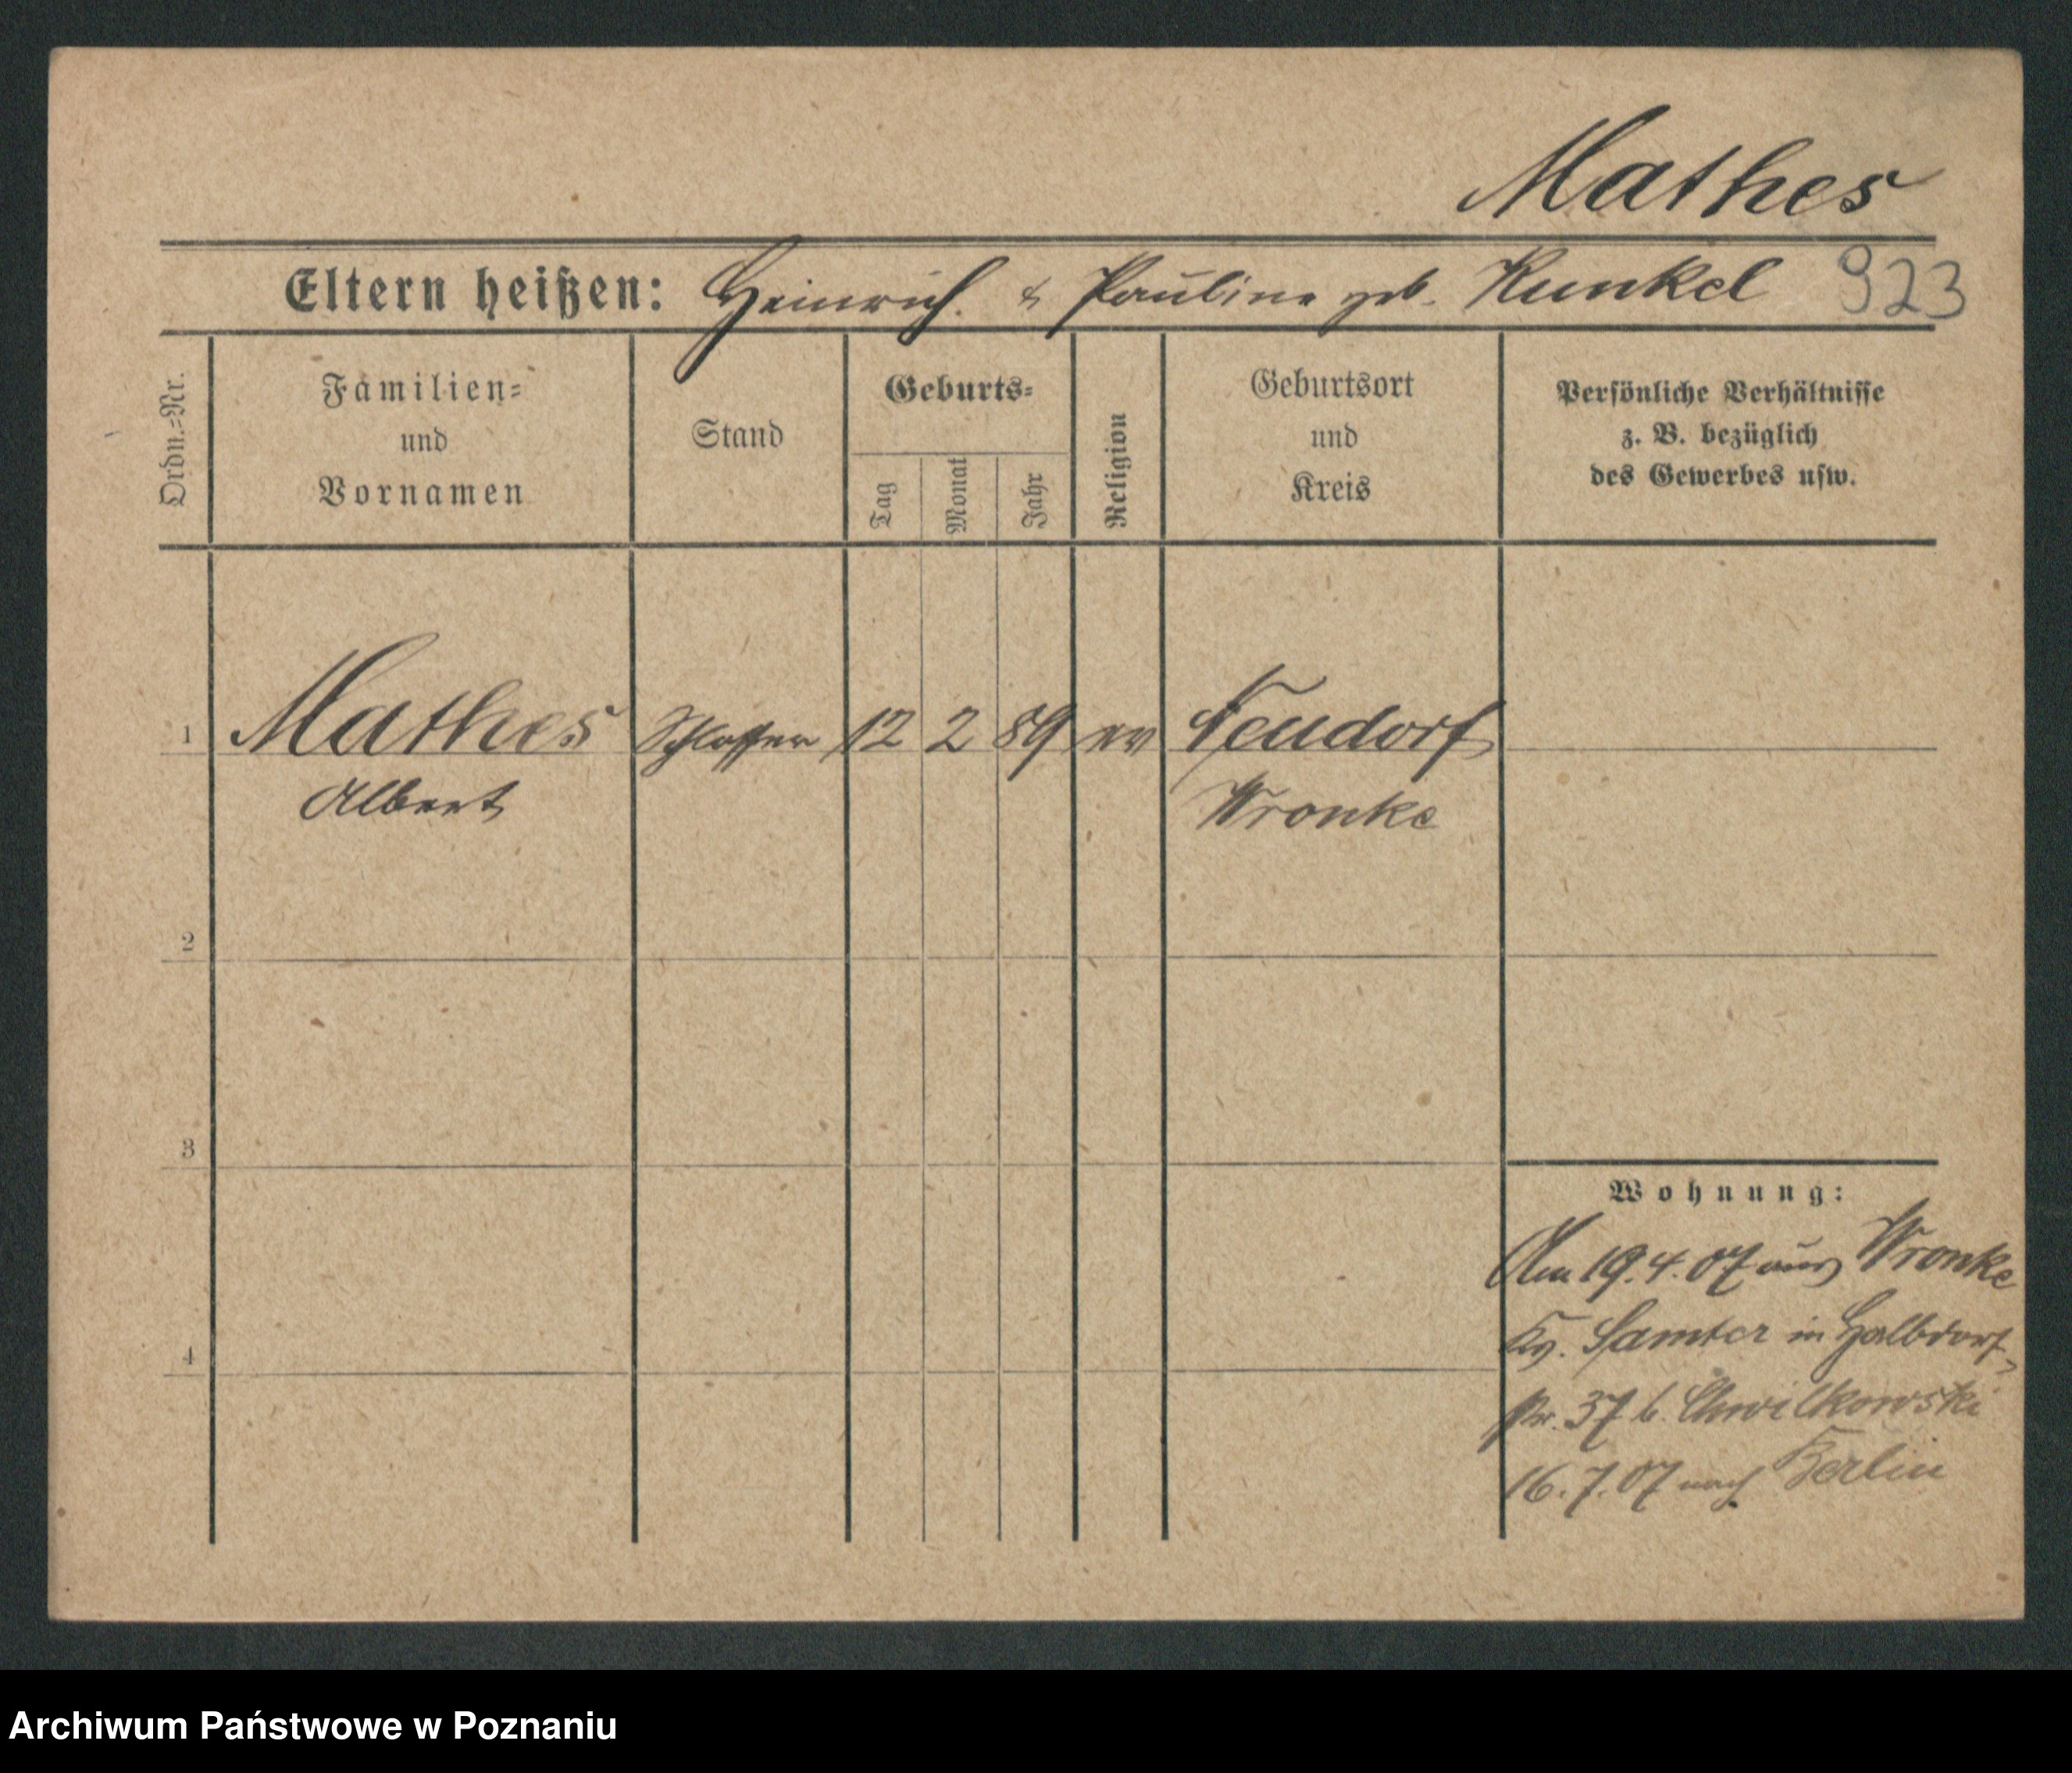 Mathes
Eltern heißen: Heinrich. & Pauline geb. Kunkel 923
Ordn.=Nr.
Familien=
und
Vornamen
Stand
Geburts=
Tag
Monat
Jahr
Religion
Geburtsort
und
Kreis
Persönliche Verhältnisse
z. B. bezüglich
des Gewerbes usw.
1 Mathes Schlosser 12 2 89 ev Neudorf
Albert Wronke
2
3
4
Wohnung:
Am 19.4.07 aus Wronke
Kr. Samter in Halbdorf
37 b. Chwilkowski
16.7.07 nach Berlin
Archiwum Państwowe w Poznaniu